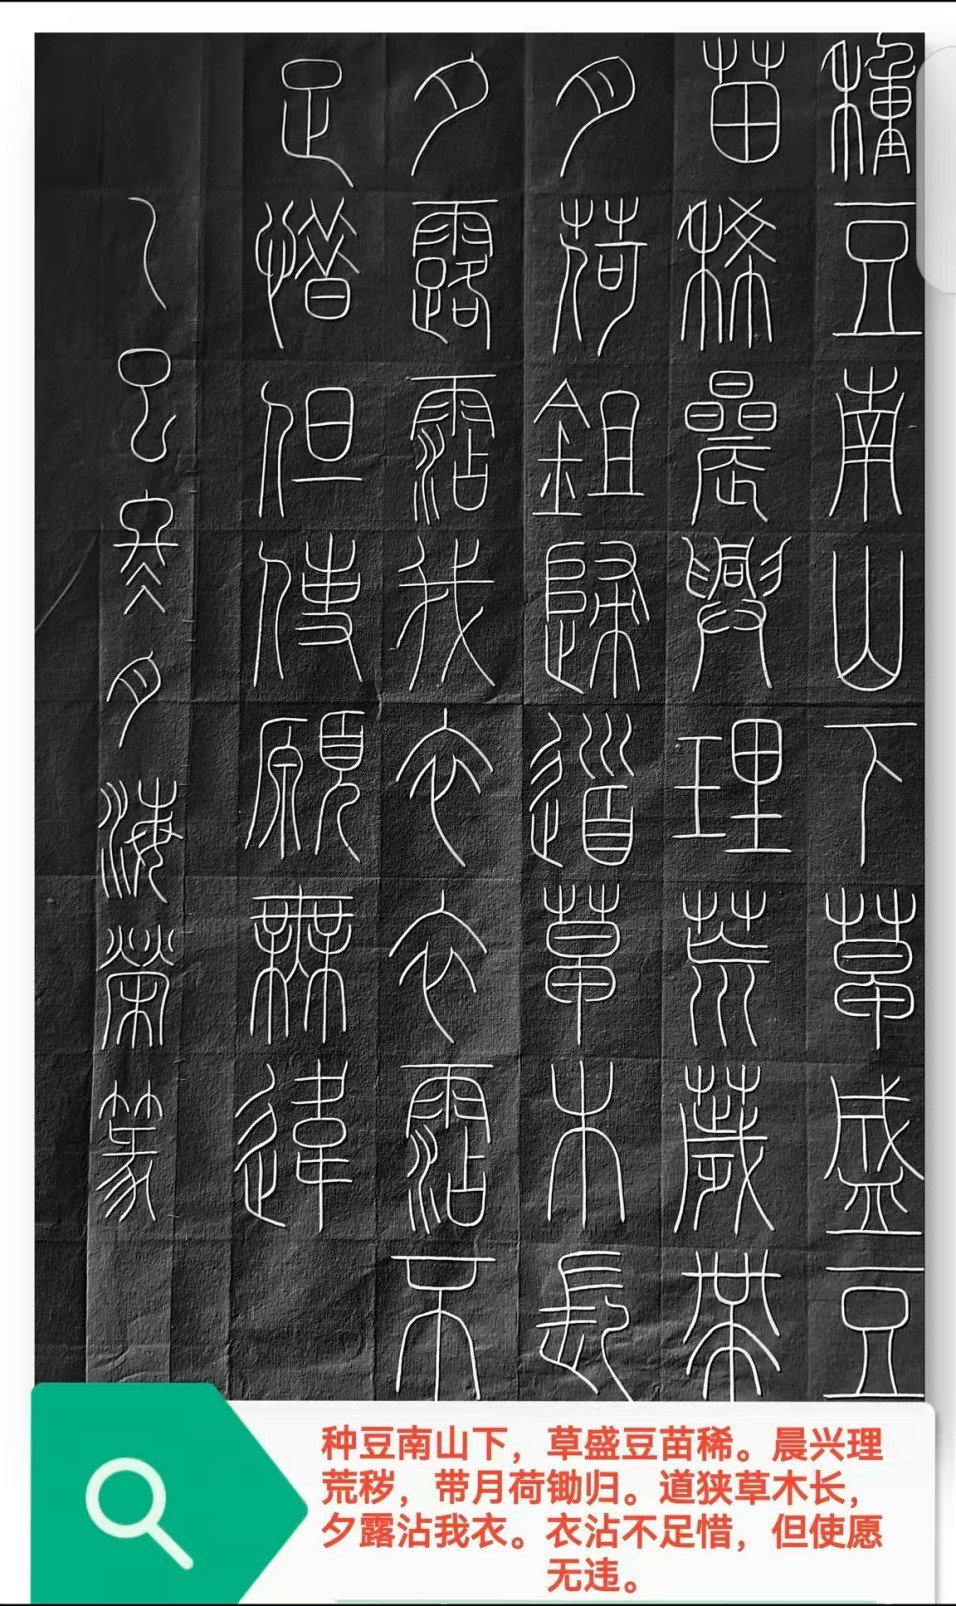 種豆南山下草盛豆
苗稀晨興理荒薉帶
月荷鉏歸道草木長
夕露霑我衣衣霑不
足惜但使願無違
乙巳冬月海榮篆
种豆南山下，草盛豆苗稀。晨兴理
荒秽，带月荷锄归。道狭草木长，
夕露沾我衣。衣沾不足惜，但使愿
无违。